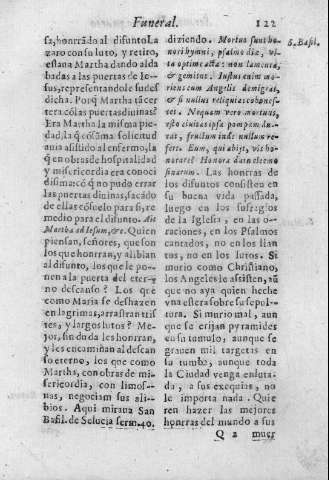 Funeral.
122
sa, honrrado al difunto La
zaro con su luto, y retiro,
esta na Martha dando alda
badas a las puertas de Ie-
sus, representandole su des
dicha. Porq̃ Martha tã cer
tera cõ las puertas diuinas?
Era Martha la misma pie-
dad, la q̃ cõ suma solicitud
auia assistido al enfermo, la
q̃ en obras de hospitalidad
y misericordia era conoci
dissima: cõ q̃ no pudo errar
las puertas diuinas, sacãdo
de ellas cõsuelo para si, re
medio para el difunto. Aut
Martha ad Iesum, &c. Quien
piensan, señores, que son
los que honrran, y alibian
al difunto, los que le po-
nen a la puerta del eter-
no descanso? Los que
como Maria se deshazen
en lagrimas, arrastran tris
tes, y largos lutos? Me-
jor, sin duda les honrran,
y les encamiñan al descan
so eterno, los que como
Martha, con obras de mi-
sericordia, con limos-
nas, negociam sus ali-
bios. Aqui miraua San
Basil. de Seleucia serm. 40.
diziendo. Mortuo sunt ho-
nori hymni, psalmodia, vi-
ta optime acta: non lamenta,
& gemitus. Iustus enim mo-
riens cum Angelis demigrat,
& si nullus reliquias cohones-
tet. Nequam vero mortuus,
tota ciuitas ipsa pompam du-
cat, fructum inde nullum re-
fert. Eum, qui abijt, vis ho-
norare? Honora dato eleemo
sinarum. Las honrras de
los difuntos consisten en
su buena vida passada,
luego en los sufragios
de la Iglesia, en las o-
raciones, en los Psalmos
cantados, no en los llan
tos, no en los lutos. Si
murio como Christiano,
los Angeles le assisten, aũ
que no aya quien heche
vna estera sobre su sepul-
tora. Si murio mal, aun
que se erijan pyramides
en su tumulo; aunque se
grauen mil targetas en
su tumba, aunque toda
la Ciudad venga enluta-
da, a sus exequias, no
le importa nada. Quie
ren hazer las mejores
honeras del mundo a sus
S. Basil.
Q 2 muer